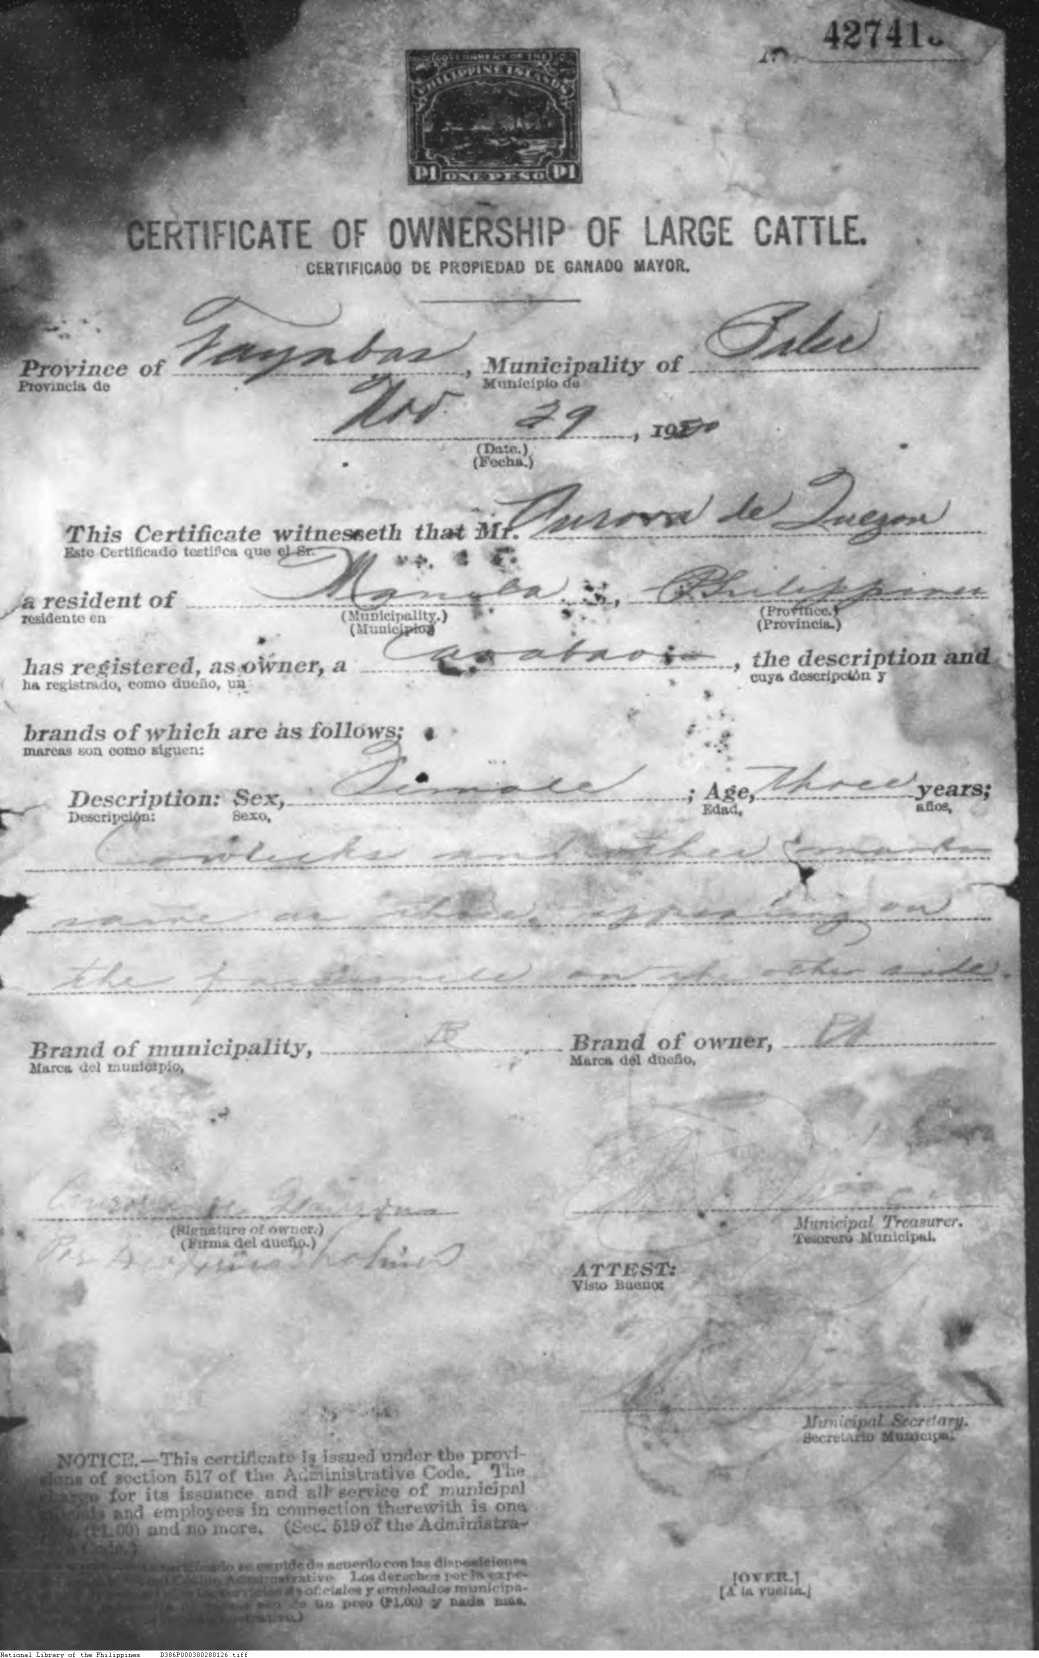 No 42741
GOVERNMENT OF THE
PHILIPPINE ISLANDS
P1 ONE PESO P1
CERTIFICATE OF OWNERSHIP OF LARGE CATTLE.
CERTIFICADO DE PROPIEDAD DE GANADO MAYOR.
Province of Tayabas, Municipality of Baler
Provincia de Municipio de
Nov. 29, 19
(Date.)
(Fecha.)
This Certificate witnesseth that Mr. Aurora de Quezon
Este Certificado testifica que el Sr.
a resident of Manila, Philippines
residente en (Municipality.) (Province.)
(Municipio) (Provincia.)
has registered, as owner, a Carabao, the description and
ha registrado, como dueño, un cuya descripción y
brands of which are as follows:
marcas son como siguen:
Description: Sex, Female; Age, three years;
Descripción: Sexo, Edad, años,
Cowlicks and other marks
same as those appearing on
the facsimile on the other side.
Brand of municipality, Brand of owner,
Marca del municipio, Marca del dueño,
Aurora de Quezon
(Signature of owner.)
(Firma del dueño.)
Por
Municipal Treasurer.
Tesorero Municipal.
ATTEST:
Visto Bueno:
Municipal Secretary.
Secretario Municipal.
NOTICE.—This certificate is issued under the provi-
sions of section 517 of the Administrative Code. The
charge for its issuance and all service of municipal
and employees in connection therewith is one
(₱1.00) and no more. (Sec. 519 of the Administra-
Code.)
certificado se expide de acuerdo con las disposiciones
Código Administrativo. Los derechos por la expe-
oficiales y empleados municipa-
de un peso (₱1.00) y nada mas.
[OVER.]
[A la vuelta.]
National Library of the Philippines D386P000300280126.tiff